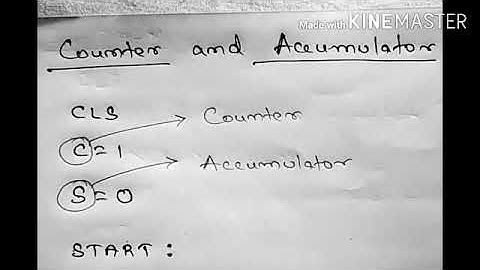 Made with KINEMASTER
Counter and Accumulator
CLS
C = 1 → Counter
S = 0 → Accumulator
START :